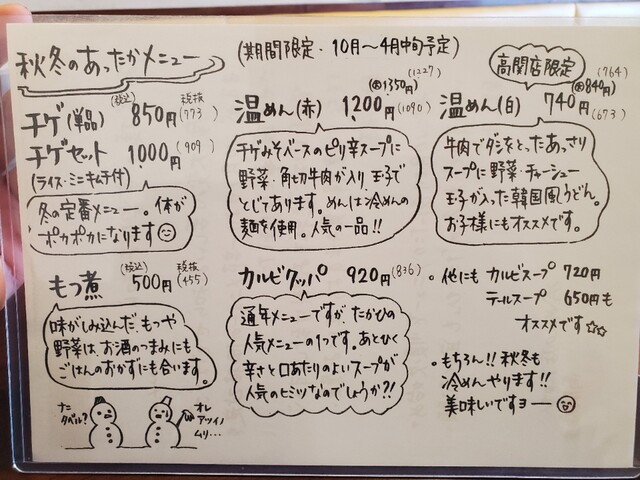 秋冬のあったかメニュー
(期間限定・10月〜4月中旬予定)
チゲ(単品) (税込) 850円 税抜(773)
チゲセット 1,000円 (909)
(ライス・ミニキムチ付)
冬の定番メニュー。体が
ポカポカになります
もつ煮 (税込) 500円 税抜(455)
味がしみ込んだ、もつや
野菜は、お酒のつまみにも
ごはんのおかずにも合います。
ナニ
タベル?
オレ
アツイノ
ムリ…
温めん(赤) 1,200円 (1090)
大1350円 (1227)
チゲみそベースのピリ辛スープに
野菜・角切牛肉が入り玉子で
とじてあります。めんは冷めんの
麺を使用。人気の一品!!
カルビクッパ 920円 (836)
通年メニューですが、たかひの
人気メニューの1つです。あとひく
辛さと口あたりのよいスープが
人気のヒミツなのでしょうか?!
高関店限定
温めん(白) 740円 (673)
大840円 (764)
牛肉でダシをとったあっさり
スープに野菜・チャーシュー
玉子が入った韓国風うどん。
お子様にもオススメです。
・他にも カルビスープ 720円
テールスープ 650円も
オススメです☆☆
・もちろん!! 秋冬も
冷めんやります!!
美味しいですヨー